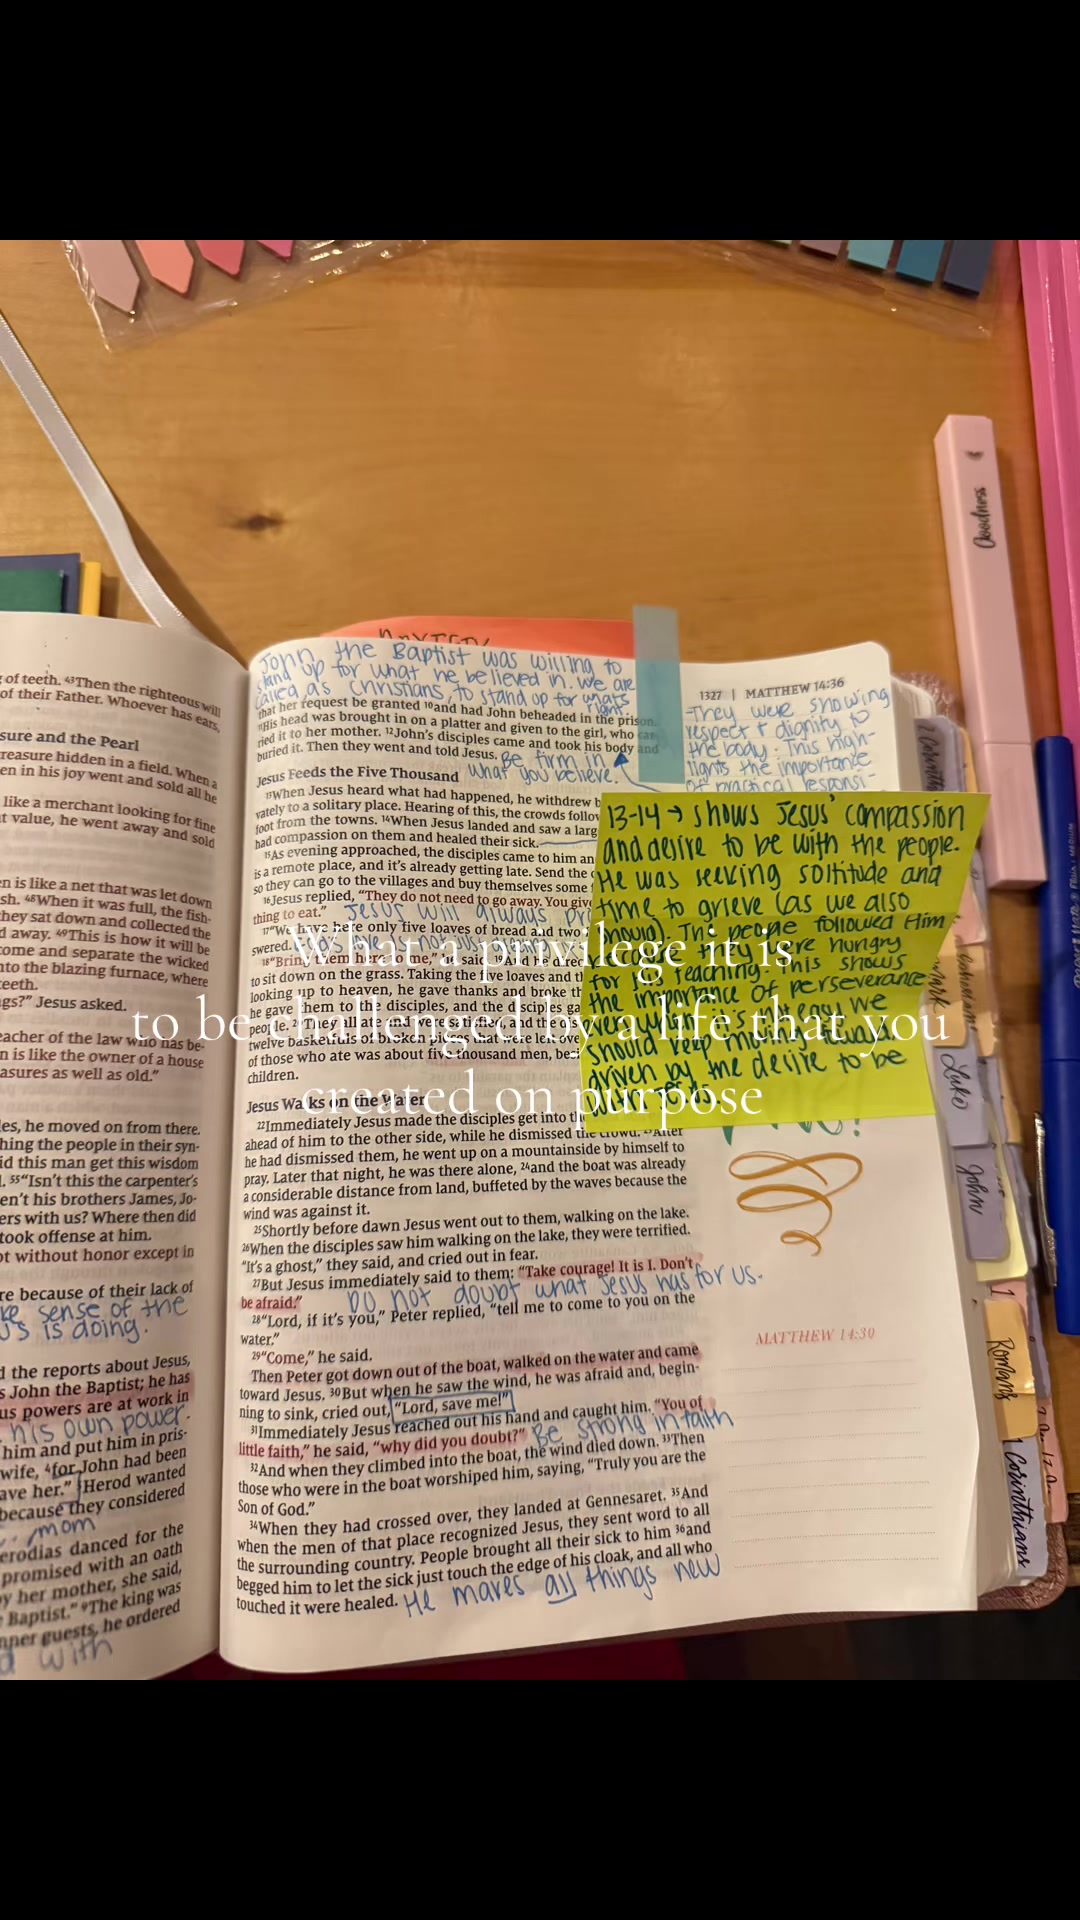 Goodness
of teeth. ⁴³Then the righteous will
of their Father. Whoever has ears,
sure and the Pearl
reasure hidden in a field. When a
en in his joy went and sold all he
like a merchant looking for fine
at value, he went away and sold
en is like a net that was let down
sh. ⁴⁸When it was full, the fish-
they sat down and collected the
d away. ⁴⁹This is how it will be
come and separate the wicked
nto the blazing furnace, where
teeth.
gs?" Jesus asked.
eacher of the law who has be-
n is like the owner of a house
asures as well as old."
les, he moved on from there.
hing the people in their syn-
id this man get this wisdom
. ⁵⁵"Isn't this the carpenter's
en't his brothers James, Jo-
ers with us? Where then did
took offense at him.
ot without honor except in
re because of their lack of
ke sense of the
us is doing.
d the reports about Jesus,
s John the Baptist; he has
us powers are at work in
his own power.
him and put him in pris-
wife, ⁴for John had been
ave her." Herod wanted
because they considered
mom
erodias danced for the
promised with an oath
y her mother, she said,
Baptist." ⁹The king was
nner guests, he ordered
d with
John the Baptist was willing to
stand up for what he believed in. We are
called as Christians, to stand up for whats
right.
that her request be granted ¹⁰and had John beheaded in the prison.
¹¹His head was brought in on a platter and given to the girl, who car-
ried it to her mother. ¹²John's disciples came and took his body and
buried it. Then they went and told Jesus. Be firm in
what you believe.
Jesus Feeds the Five Thousand
¹³When Jesus heard what had happened, he withdrew
vately to a solitary place. Hearing of this, the crowds
foot from the towns. ¹⁴When Jesus landed and saw a
had compassion on them and healed their sick.
¹⁵As evening approached, the disciples came to him
is a remote place, and it's already getting late. Send the
so they can go to the villages and buy themselves some
¹⁶Jesus replied, "They do not need to go away. You
thing to eat." Jesus will always
¹⁷"We have here only five loaves of bread and two
swered.
¹⁸"Bring them here to me," he said. ¹⁹And he
to sit down on the grass. Taking the five loaves and
looking up to heaven, he gave thanks and broke
he gave them to the disciples, and the disciples
people. ²⁰They all ate and were satisfied, and the
twelve basketfuls of broken pieces that were left
of those who ate was about five thousand men,
children.
Jesus Walks on the Water
²²Immediately Jesus made the disciples get into
ahead of him to the other side, while he dismissed the crowd. ²³After
he had dismissed them, he went up on a mountainside by himself to
pray. Later that night, he was there alone, ²⁴and the boat was already
a considerable distance from land, buffeted by the waves because the
wind was against it.
²⁵Shortly before dawn Jesus went out to them, walking on the lake.
²⁶When the disciples saw him walking on the lake, they were terrified.
"It's a ghost," they said, and cried out in fear.
²⁷But Jesus immediately said to them: "Take courage! It is I. Don't
be afraid." Do not doubt what Jesus has for us.
²⁸"Lord, if it's you," Peter replied, "tell me to come to you on the
water."
²⁹"Come," he said.
Then Peter got down out of the boat, walked on the water and came
toward Jesus. ³⁰But when he saw the wind, he was afraid and, begin-
ning to sink, cried out, "Lord, save me!"
³¹Immediately Jesus reached out his hand and caught him. "You of
little faith," he said, "why did you doubt?" Be strong in faith
³²And when they climbed into the boat, the wind died down. ³³Then
those who were in the boat worshiped him, saying, "Truly you are the
Son of God."
³⁴When they had crossed over, they landed at Gennesaret. ³⁵And
when the men of that place recognized Jesus, they sent word to all
the surrounding country. People brought all their sick to him ³⁶and
begged him to let the sick just touch the edge of his cloak, and all who
touched it were healed. He makes all things new
1327 | MATTHEW 14:36
-They were showing
respect + dignity to
the body. This high-
lights the importance
of practical responsi-
13-14 → shows Jesus' compassion
and desire to be with the people.
He was seeking soltitude and
time to grieve (as we also
should). The people followed Him
because they were hungry
for his teaching. This shows
the importance of perseverance
should keep moving toward.
driven by the desire to be
with Jesus.
MATTHEW 14:30
What a privilege it is
to be challenged by a life that you
created on purpose
Mark
Luke
John
Romans
1 Corinthians